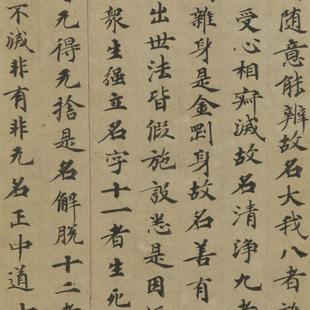 随意能辨故名大我八者諸
受心相齊滅故名清淨九者
雜身是金剛身故名善有
出世法皆假施設悉是因
衆生强立名字十一者生死
无得无捨是名解脱十二者
不滅非有非无名正中道